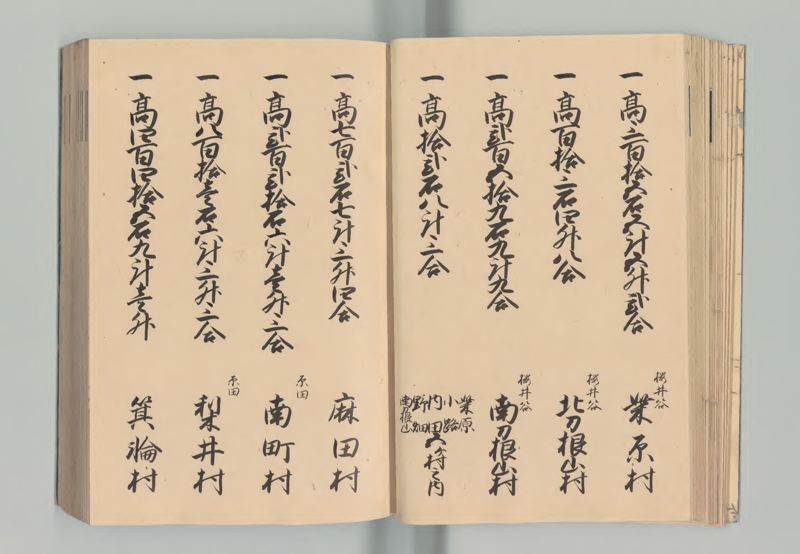 一高三百拾五石五斗五升弐合
桜井谷
柴原村
一高百拾三石四升八合
桜井谷
北刀根山村
一高弐百五拾九石九斗九合
桜井谷
南刀根山村
一高拾弐石八斗三合
柴原
小路
内田
野畑
南刀根山
五ヶ村之内
一高七百弐石七斗三升四合
麻田村
一高弐百弐拾石六斗壱升三合
原田
南町村
一高八百拾壱石六斗三升三合
原田
梨井村
一高四百四拾五石九斗壱升
箕輪村